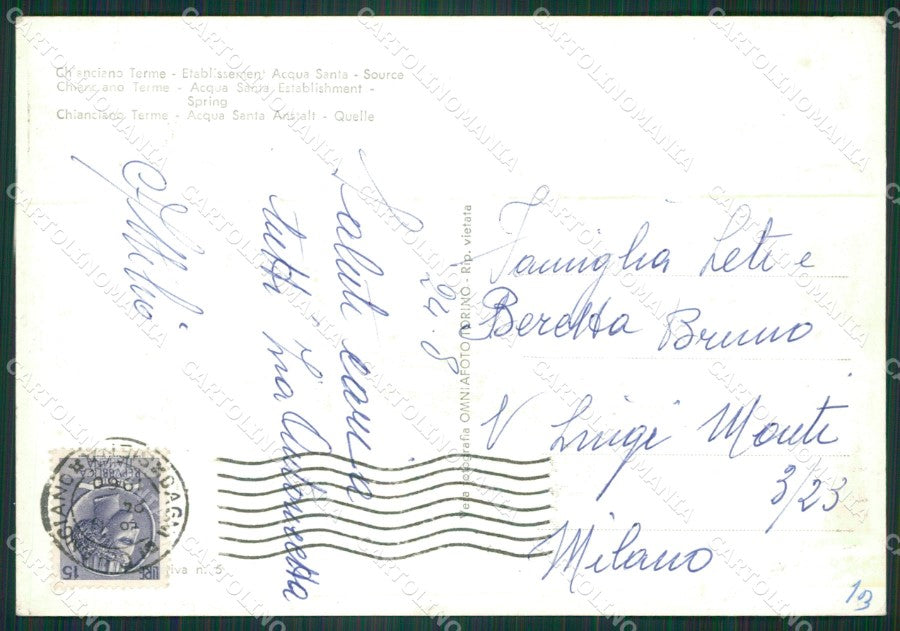 Chianciano Terme - Etablissement Acqua Santa - Source
Chianciano Terme - Acqua Santa Establishment -
Spring
Chianciano Terme - Acqua Santa Anstalt - Quelle
24.8
Saluti cari a
tutti Zia Antonietta
Vera fotografia OMNIAFOTO TORINO - Rip. vietata
Famiglia Leti e
Beretta Bruno
V Luigi Monti
3/23
Milano
LIRE 15
iva n. 5
13
CARTOLINOMANIA